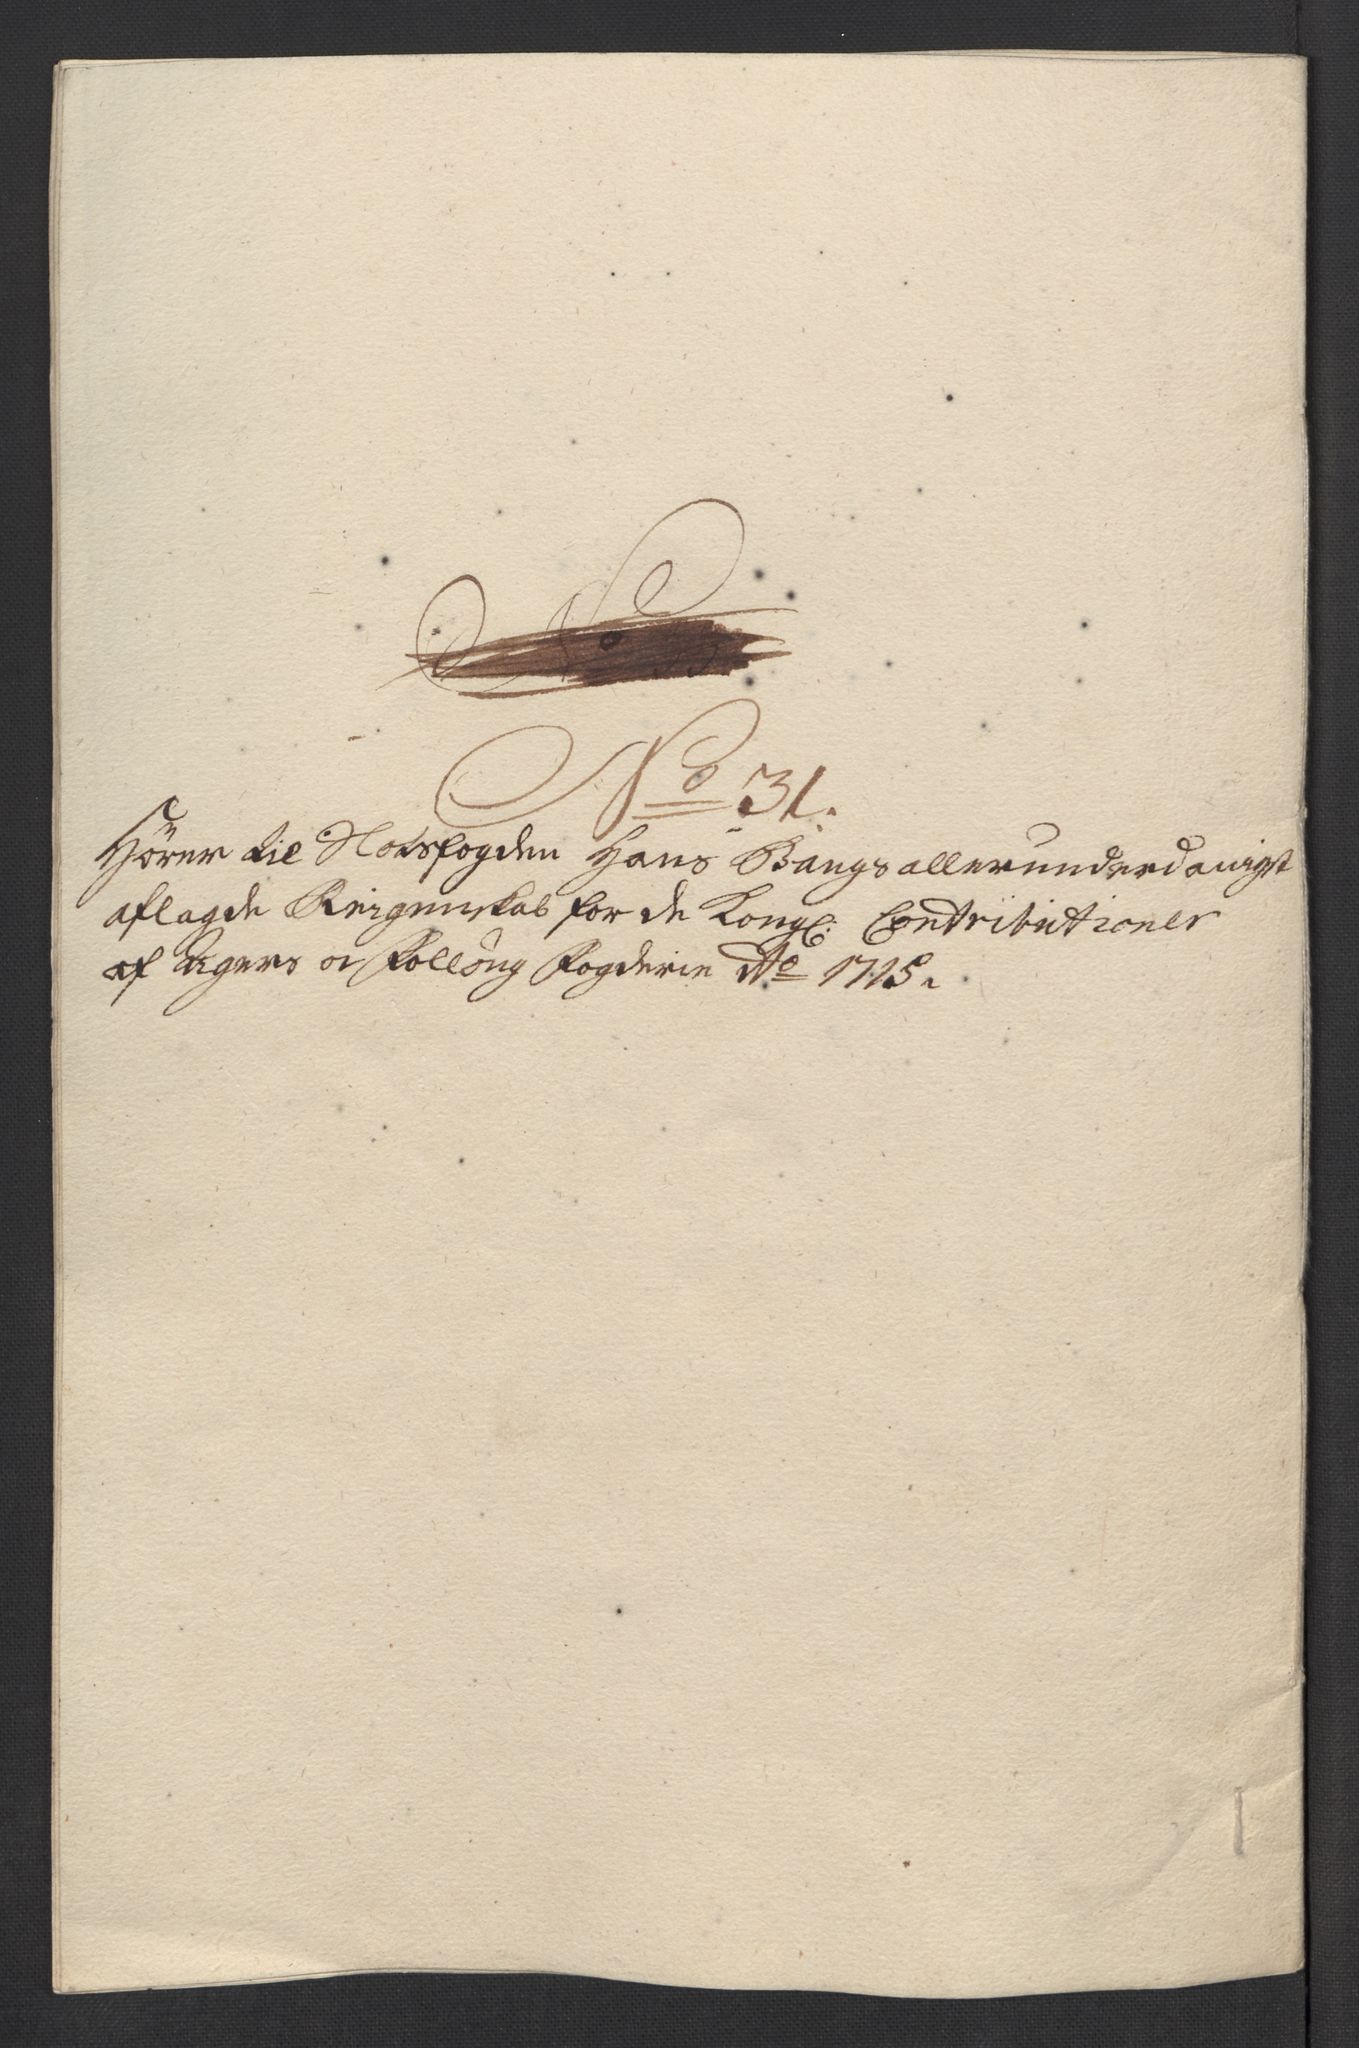 No 31.
Hörer til Slotsfogden Hans Bangs allerunderdanigst
aflagde Reigenskab for de Kongl: Contributioner
af Agers oc Folloug Fogderie Ao 1715.